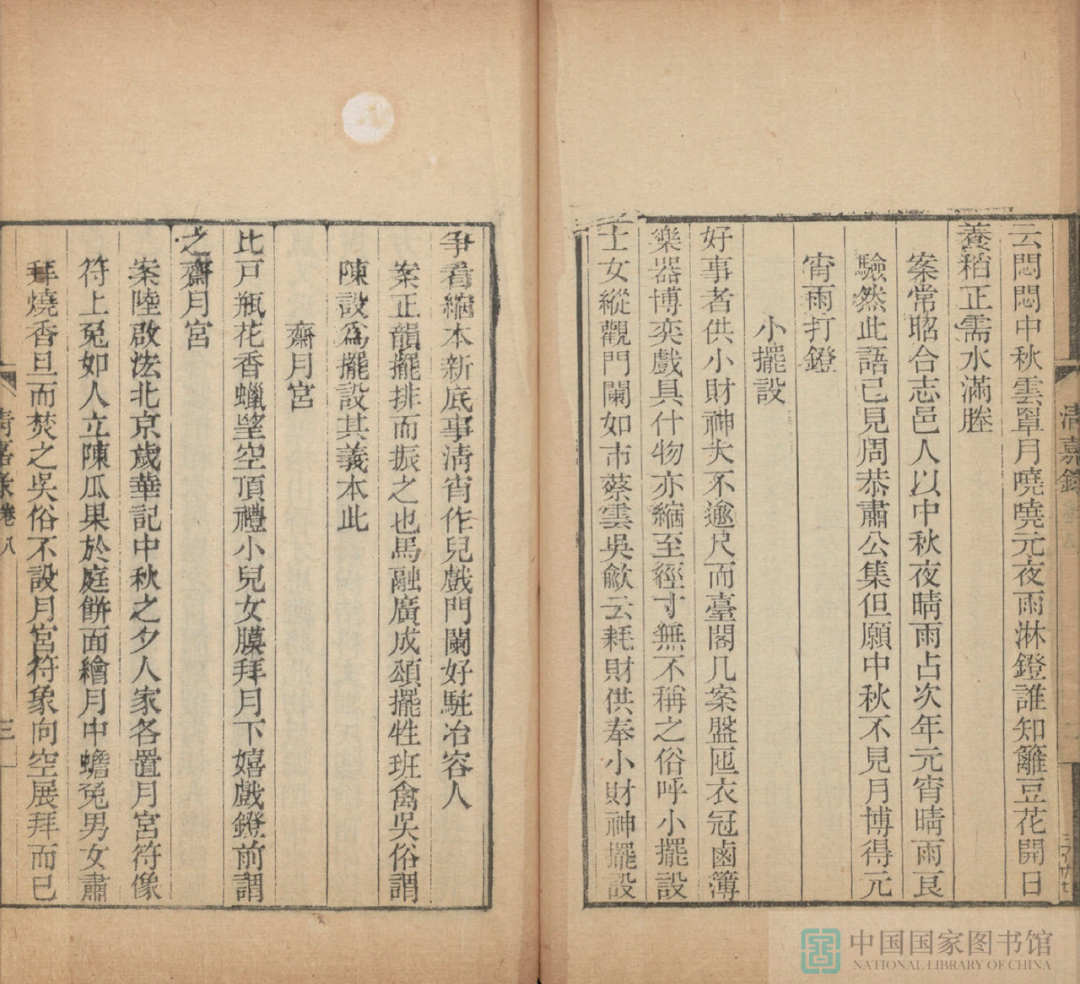 云悶悶中秋雲罩月曉曉元夜雨淋鐙誰知籬豆花開日
養稻正需水滿塍
案常昭合志邑人以中秋夜晴雨占次年元宵晴雨良
驗然此語已見周恭肅公集但願中秋不見月博得元
宵雨打鐙
小擺設
好事者供小財神大不逾尺而臺閣几案盤匜衣冠鹵簿
樂器博奕戲具什物亦縮至徑寸無不稱之俗呼小擺設
士女縱觀門闌如市蔡雲吳歈云耗財供奉小財神擺設
爭看縮本新底事清宵作兒戲門闌好駐冶容人
案正韻擺排而振之也馬融廣成頌擺牲班禽吳俗謂
陳設爲擺設其義本此
齋月宮
比戶瓶花香蠟望空頂禮小兒女膜拜月下嬉戲鐙前謂
之齋月宮
案陸啟浤北京歲華記中秋之夕人家各置月宮符像
符上兔如人立陳瓜果於庭餅面繪月中蟾兔男女肅
拜燒香旦而焚之吳俗不設月宮符象向空展拜而已
清嘉錄
清嘉錄卷八
三
中国国家图书馆
NATIONAL LIBRARY OF CHINA